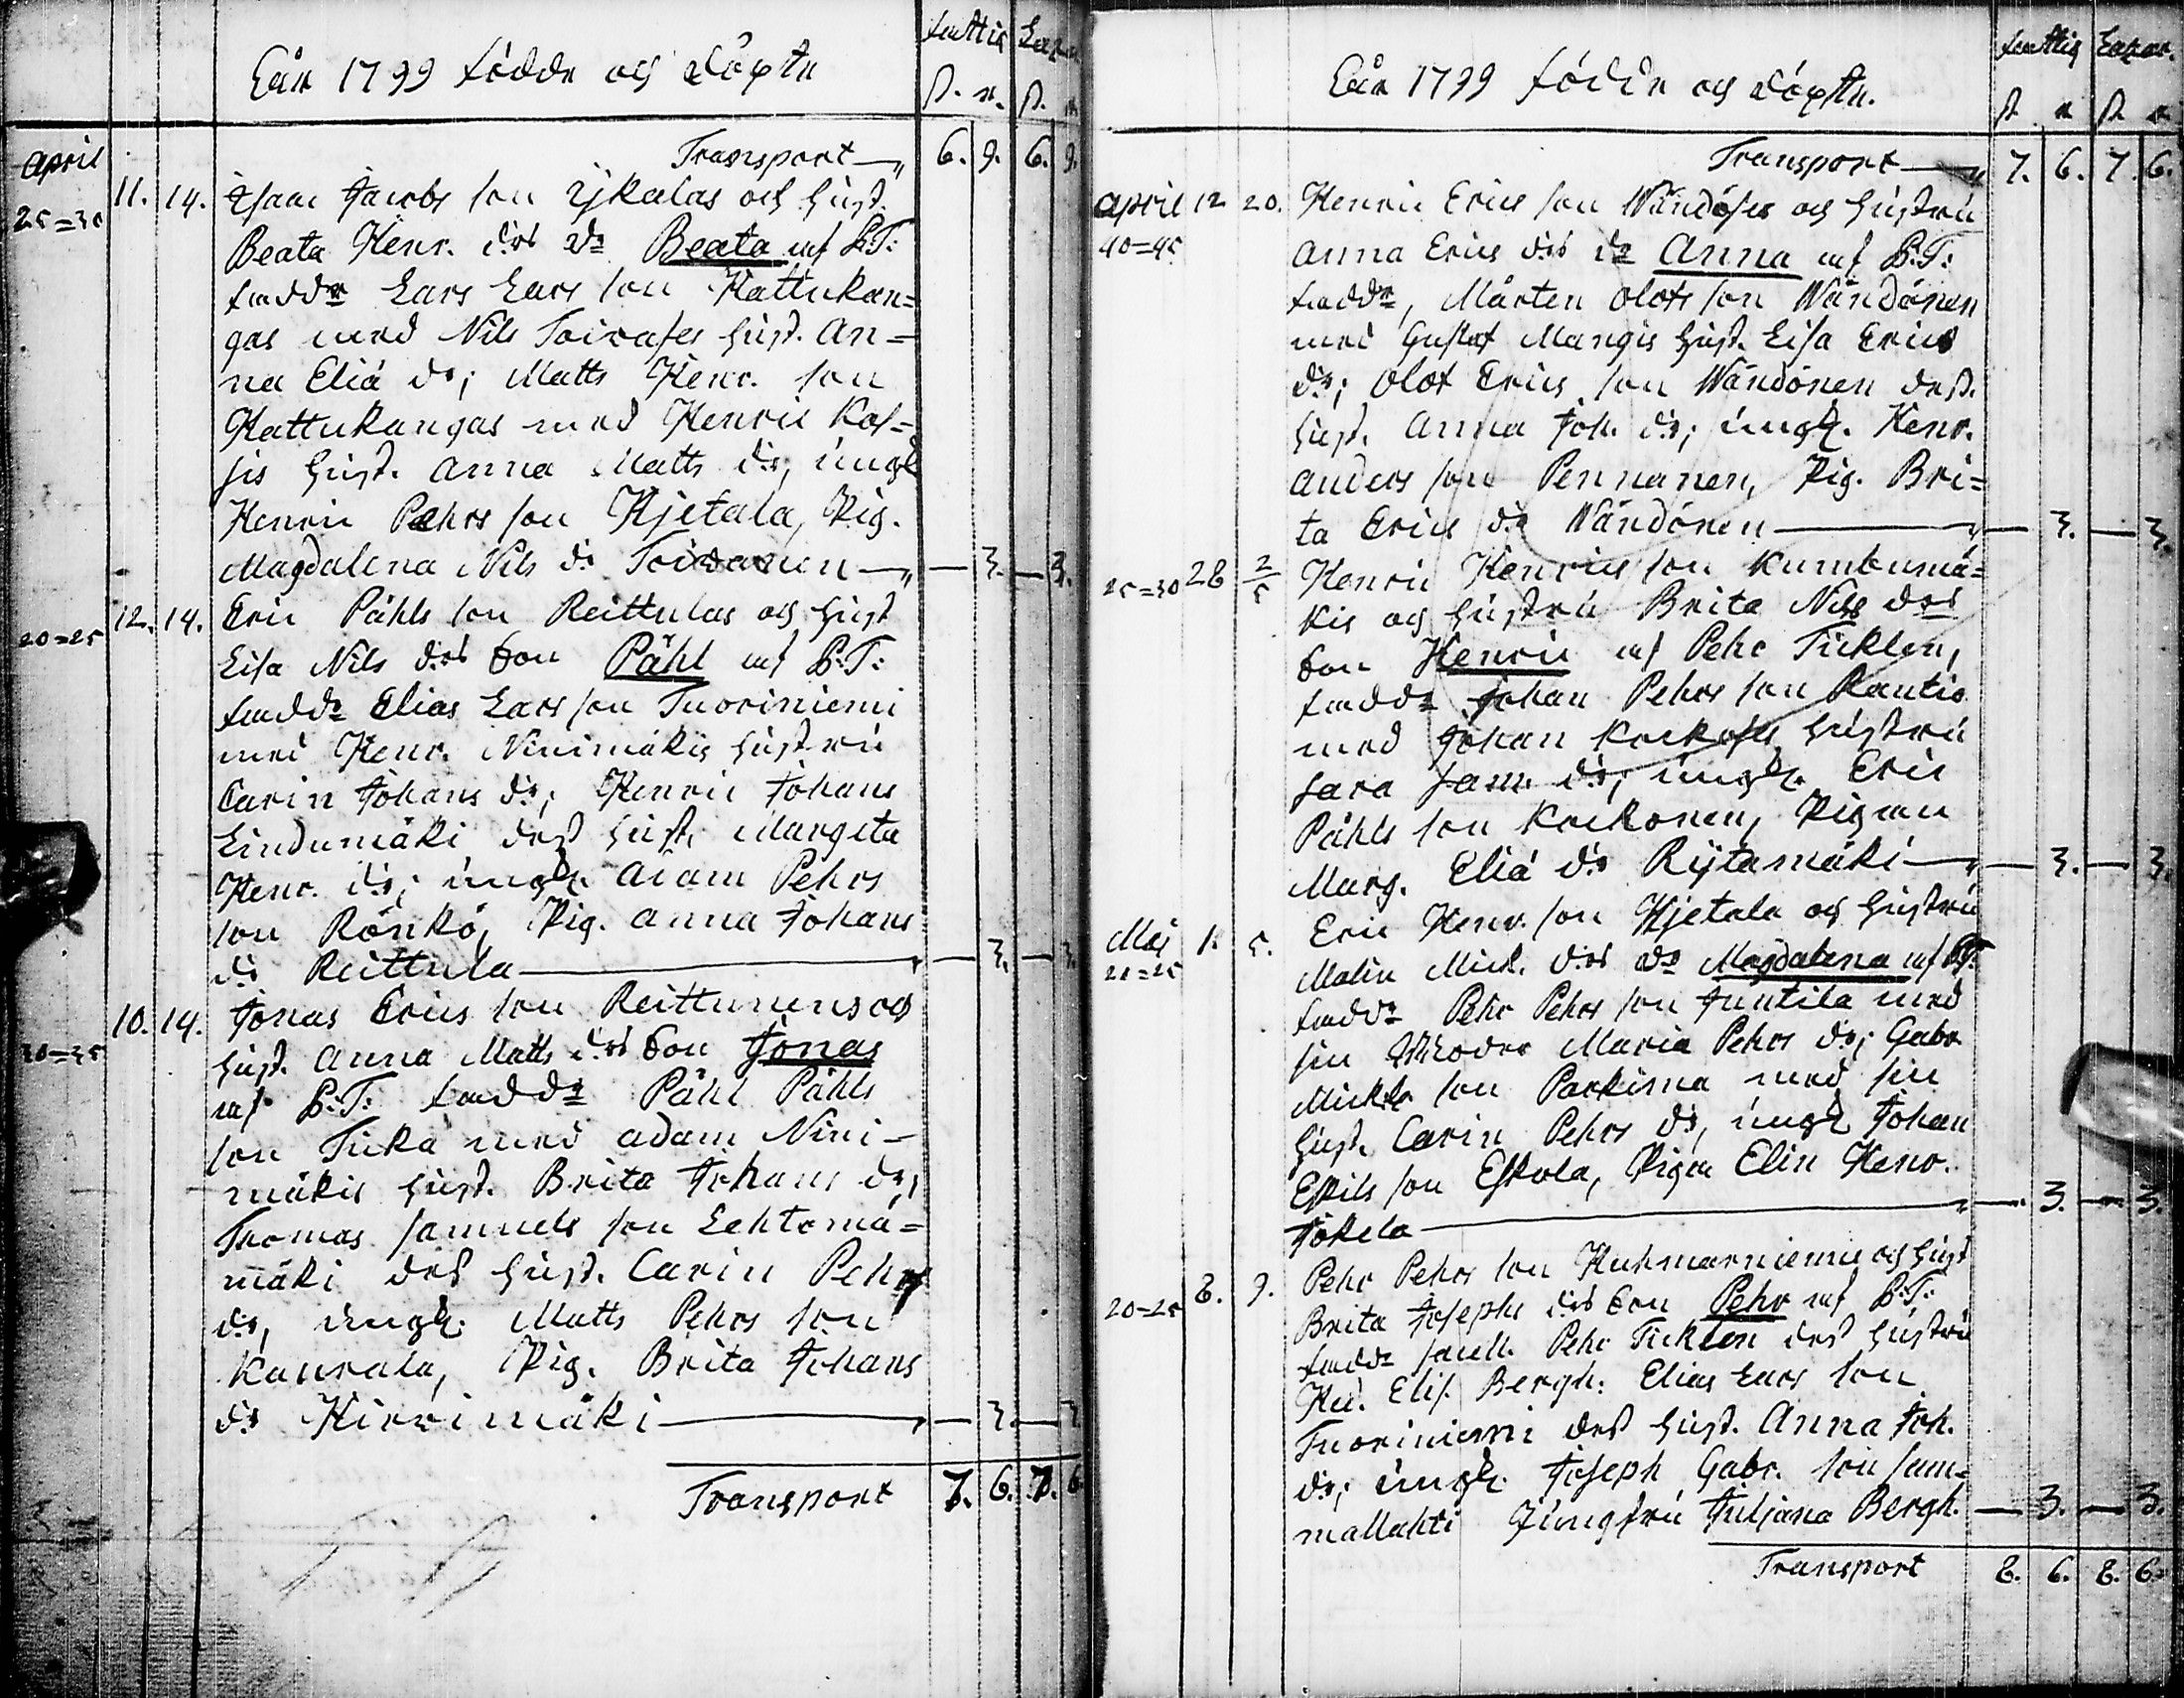 Åår 1799 födde och döpte
fattig Lazar.
ß. r. ß. r.
Transport 6. 9. 6. 9.
April 11. 14. Isaac Jacobs son Ijkalas och hust.
25=30 Beata Henr. drs dr Beata af B:T:
faddr Lars Lars son Hattukan=
gas med Nils Toivases hust. An=
na Eliæ dr; Matts Henr. son
Hattukangas med Henric Kos=
sis hust. Anna Matts dr, ungk
Henric Pehrs son Hjetala, Pig.
Magdalena Nils dr Toivanen — 3. — 3.
12. 14. Eric Påhls son Reittulas och hust
20=25 Lisa Nils drs Son Påhl af B:T:
faddr Elias Lars son Tuoriniemi
med Henr. Ninimäkis hustru
Carin Johans dr; Henric Johans
Lindumäki dess hust. Margeta
Henr. dr; ungk. Adam Pehrs
son Rönkö, Pig. Anna Johans
dr Reittula — 3. — 3.
10. 14. Jonas Erics son Reittunens och
hust. Anna Matts drs Son Jonas
af B:T: faddr Påhl Påhls
son Ticka med Adam Nini=
mäkis hust. Brita Johans dr;
Thomas Samuels son Lehtomä=
mäki dess hust. Carin Pehrs
dr, ungk. Matts Pehrs son
Kaurala, Pig. Brita Johans
dr Hirvimäki — 3. — 3.
Transport 7. 6. 7. 6.
Åår 1799 födde och döpte.
fattig Lazar.
ß r ß r
Transport 7. 6. 7. 6.
April 12 20. Henric Erics son Wändöses och hustru
40=45 Anna Erics drs dr Anna af B:T:
faddr, Mårten Olofs son Wändönen
med Gustaf Mangis hust. Lisa Erics
dr; Olof Erics son Wändönen dess
hust. Anna Joh. dr; ungk. Henr.
Anders son Pennanen, Pig. Bri=
ta Erics dr Wändönen — 3. — 3.
25=30 28 2/5 Henric Henrics son Kumbumä=
kis och hustru Brita Nils drs
Son Henric af Pehr Ticklen,
faddr Johan Pehrs son Rautio
med Johan Kockoses hustru
Sara Sam. dr; ungk. Eric
Påhls son Kockonen, Pigan
Marg. Eliæ dr Rytämäki — 3. — 3.
Maj 1. 5. Eric Henr. son Hjetala och hustru
20=25 Malin Mick. drs dr Magdalena af B:T:
faddr Pehr Pehrs son Juntila med
sin Moder Maria Pehrs dr; Gabr.
Mickels son Parkisna med sin
hust. Carin Pehrs dr, ungk Johan
Eskils son Eskola, Piga Elin Henr.
Jokela — 3. — 3.
8. 9. Pehr Pehrs son Kuhmarniemis och hust
20=25 Brita Josephs drs Son Pehr af B:T:
faddr Pehr Ticklen dess hustru
Hed. Elis. Bergh. Elias Lars son
Tuoriniemi dess hust. Anna Joh.
dr; ungk. Joseph Gabr. son Sam=
mallahti Jungfru Juljana Bergh. — 3. — 3.
Transport 8. 6. 8. 6.